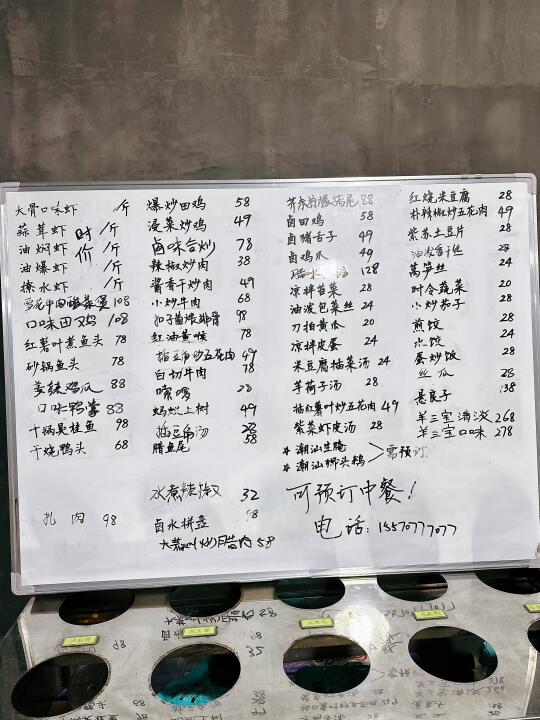 大骨口味虾 /斤
蒜茸虾 /斤
时价
油焖虾 /斤
油爆虾 /斤
撩水虾 /斤
108
口味田鸡 108
红薯叶煮鱼头 78
砂锅鱼头 78
姜辣鸡爪 88
口味鸭掌 88
十锅臭桂鱼 98
干烧鸭头 68
扎肉 98
爆炒田鸡 58
浸菜炒鸡 49
卤味合炒 78
辣椒炒肉 38
酱香干炒肉 49
小炒牛肉 68
98
红油黄喉 78
掐豆角炒五花肉 49
白切牛肉 78
嗦嗦 28
蚂蚁上树 49
汤 28
腊鱼尾 58
水煮辣椒 32
卤水拼盘
大蒜叶炒腊肉 58
88
卤田鸡 58
卤猪舌子 49
卤鸡爪 49
128
凉拌苔菜 28
油泼包菜丝 24
刀拍黄瓜 20
凉拌皮蛋 24
米豆腐插菜汤 24
芋荷子汤 28
掐红薯叶炒五花肉 49
紫菜虾皮汤 28
* 潮汕生腌
* 潮汕狮头鹅 > 需预订
可预订中餐!
电话: 15570777077
红烧米豆腐 28
朴辣椒炒五花肉 49
紫苏土豆片 28
28
莴笋丝 24
时令蔬菜 20
小炒茄子 28
煎饺 28
水饺 24
蛋炒饭 28
丝瓜
长良子 138
羊三宝清淡 268
羊三宝口味 278